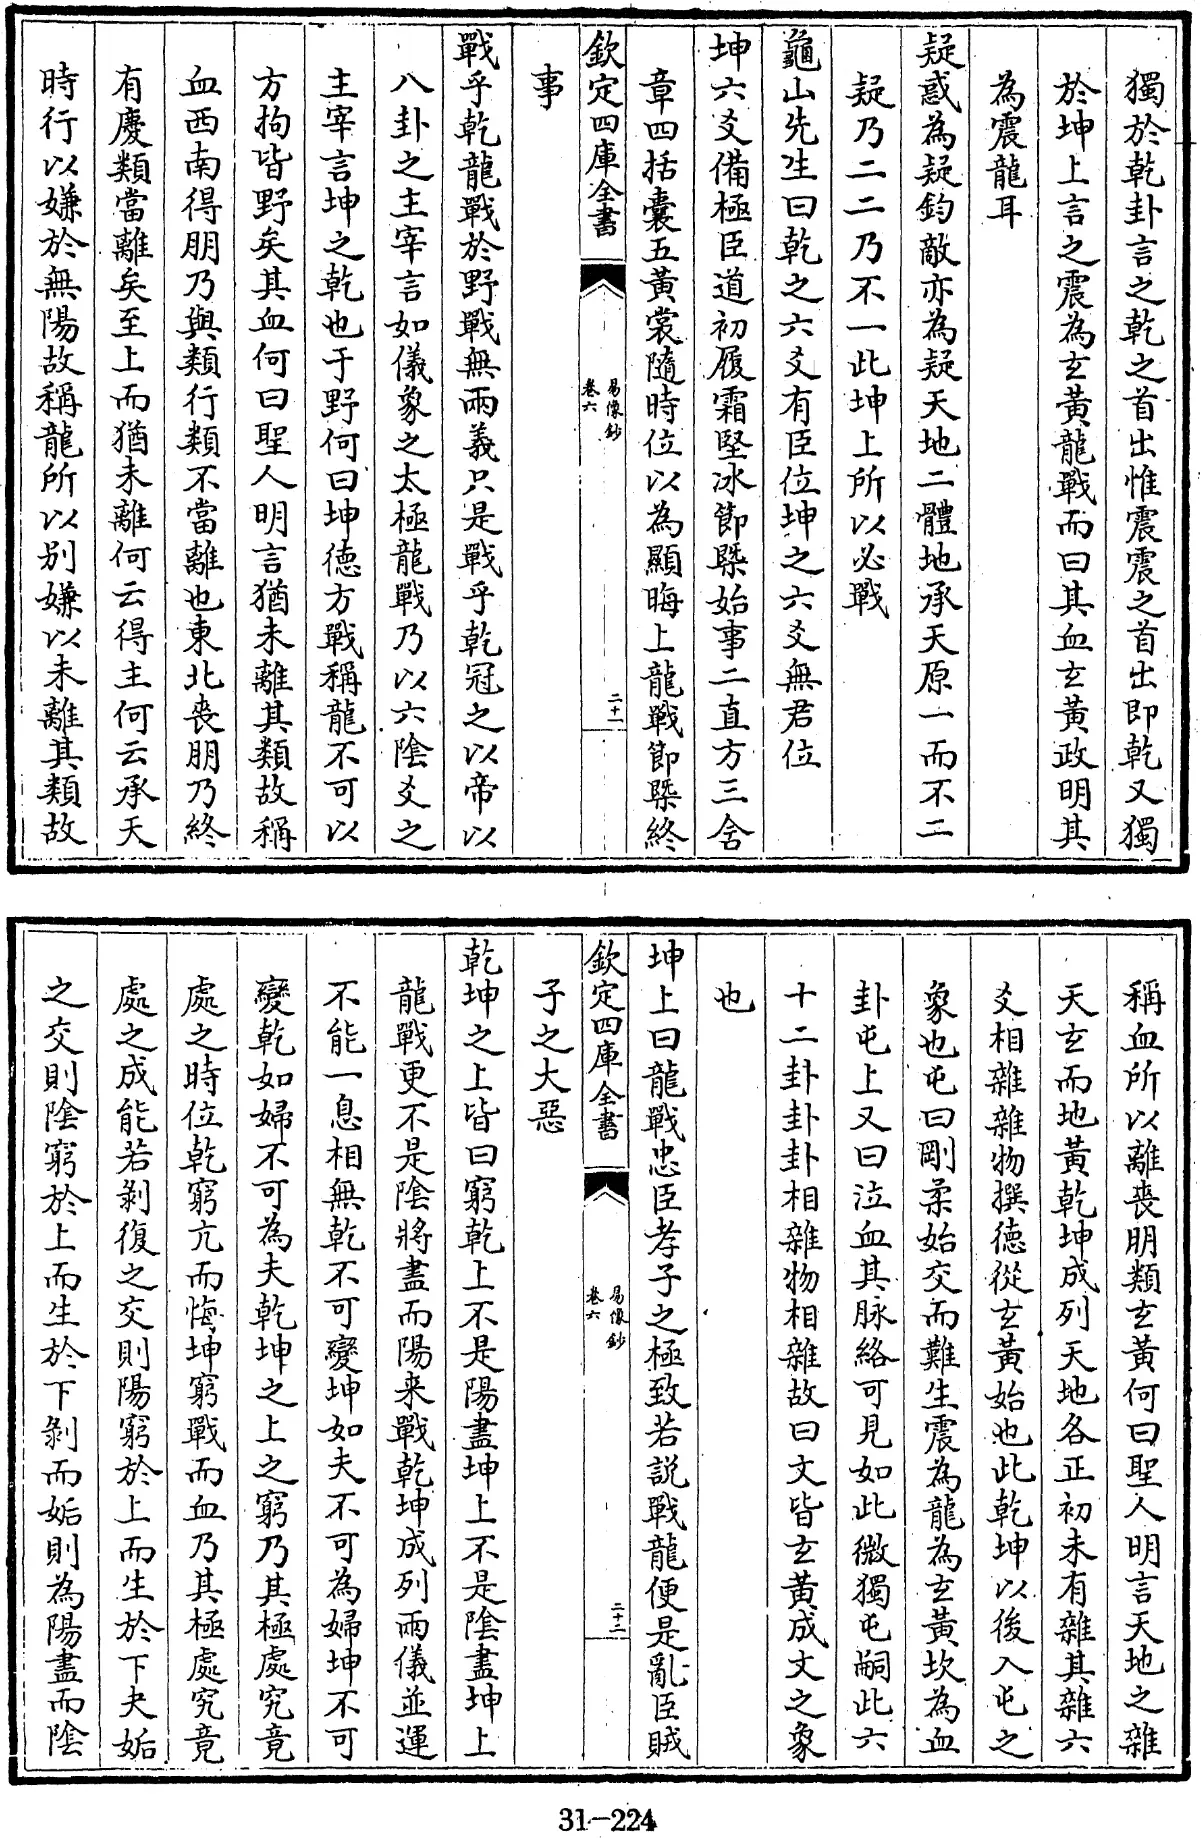 獨於乾卦言之乾之首出惟震震之首出即乾又獨
於坤上言之震為玄黃龍戰而曰其血玄黃政明其
為震龍耳
疑惑為疑鈞敵亦為疑天地二體地承天原一而不二
疑乃二二乃不一此坤上所以必戰
龜山先生曰乾之六爻有臣位坤之六爻無君位
坤六爻備極臣道初履霜堅冰節槩始事二直方三含
章四括囊五黃裳隨時位以為顯晦上龍戰節槩終
事
欽定四庫全書
易像鈔
卷六
二十一
戰乎乾龍戰於野戰無兩義只是戰乎乾冠之以帝以
八卦之主宰言如儀象之太極龍戰乃以六陰爻之
主宰言坤之乾也于野何曰坤德方戰稱龍不可以
方拘皆野矣其血何曰聖人明言猶未離其類故稱
血西南得朋乃與類行類不當離也東北喪朋乃終
有慶類當離矣至上而猶未離何云得主何云承天
時行以嫌於無陽故稱龍所以別嫌以未離其類故
稱血所以離喪朋類玄黃何曰聖人明言天地之雜
天玄而地黃乾坤成列天地各正初未有雜其雜六
爻相雜雜物撰德從玄黃始也此乾坤以後入屯之
象也屯曰剛柔始交而難生震為龍為玄黃坎為血
卦屯上又曰泣血其脉絡可見如此微獨屯嗣此六
十二卦卦卦相雜物相雜故曰文皆玄黃成文之象
也
坤上曰龍戰忠臣孝子之極致若說戰龍便是亂臣賊
欽定四庫全書
易像鈔
卷六
二十二
子之大惡
乾坤之上皆曰窮乾上不是陽盡坤上不是陰盡坤上
龍戰更不是陰將盡而陽来戰乾坤成列兩儀並運
不能一息相無乾不可變坤如夫不可為婦坤不可
變乾如婦不可為夫乾坤之上之窮乃其極處究竟
處之時位乾窮亢而悔坤窮戰而血乃其極處究竟
處之成能若剝復之交則陽窮於上而生於下夬姤
之交則陰窮於上而生於下剝而姤則為陽盡而陰
31-224